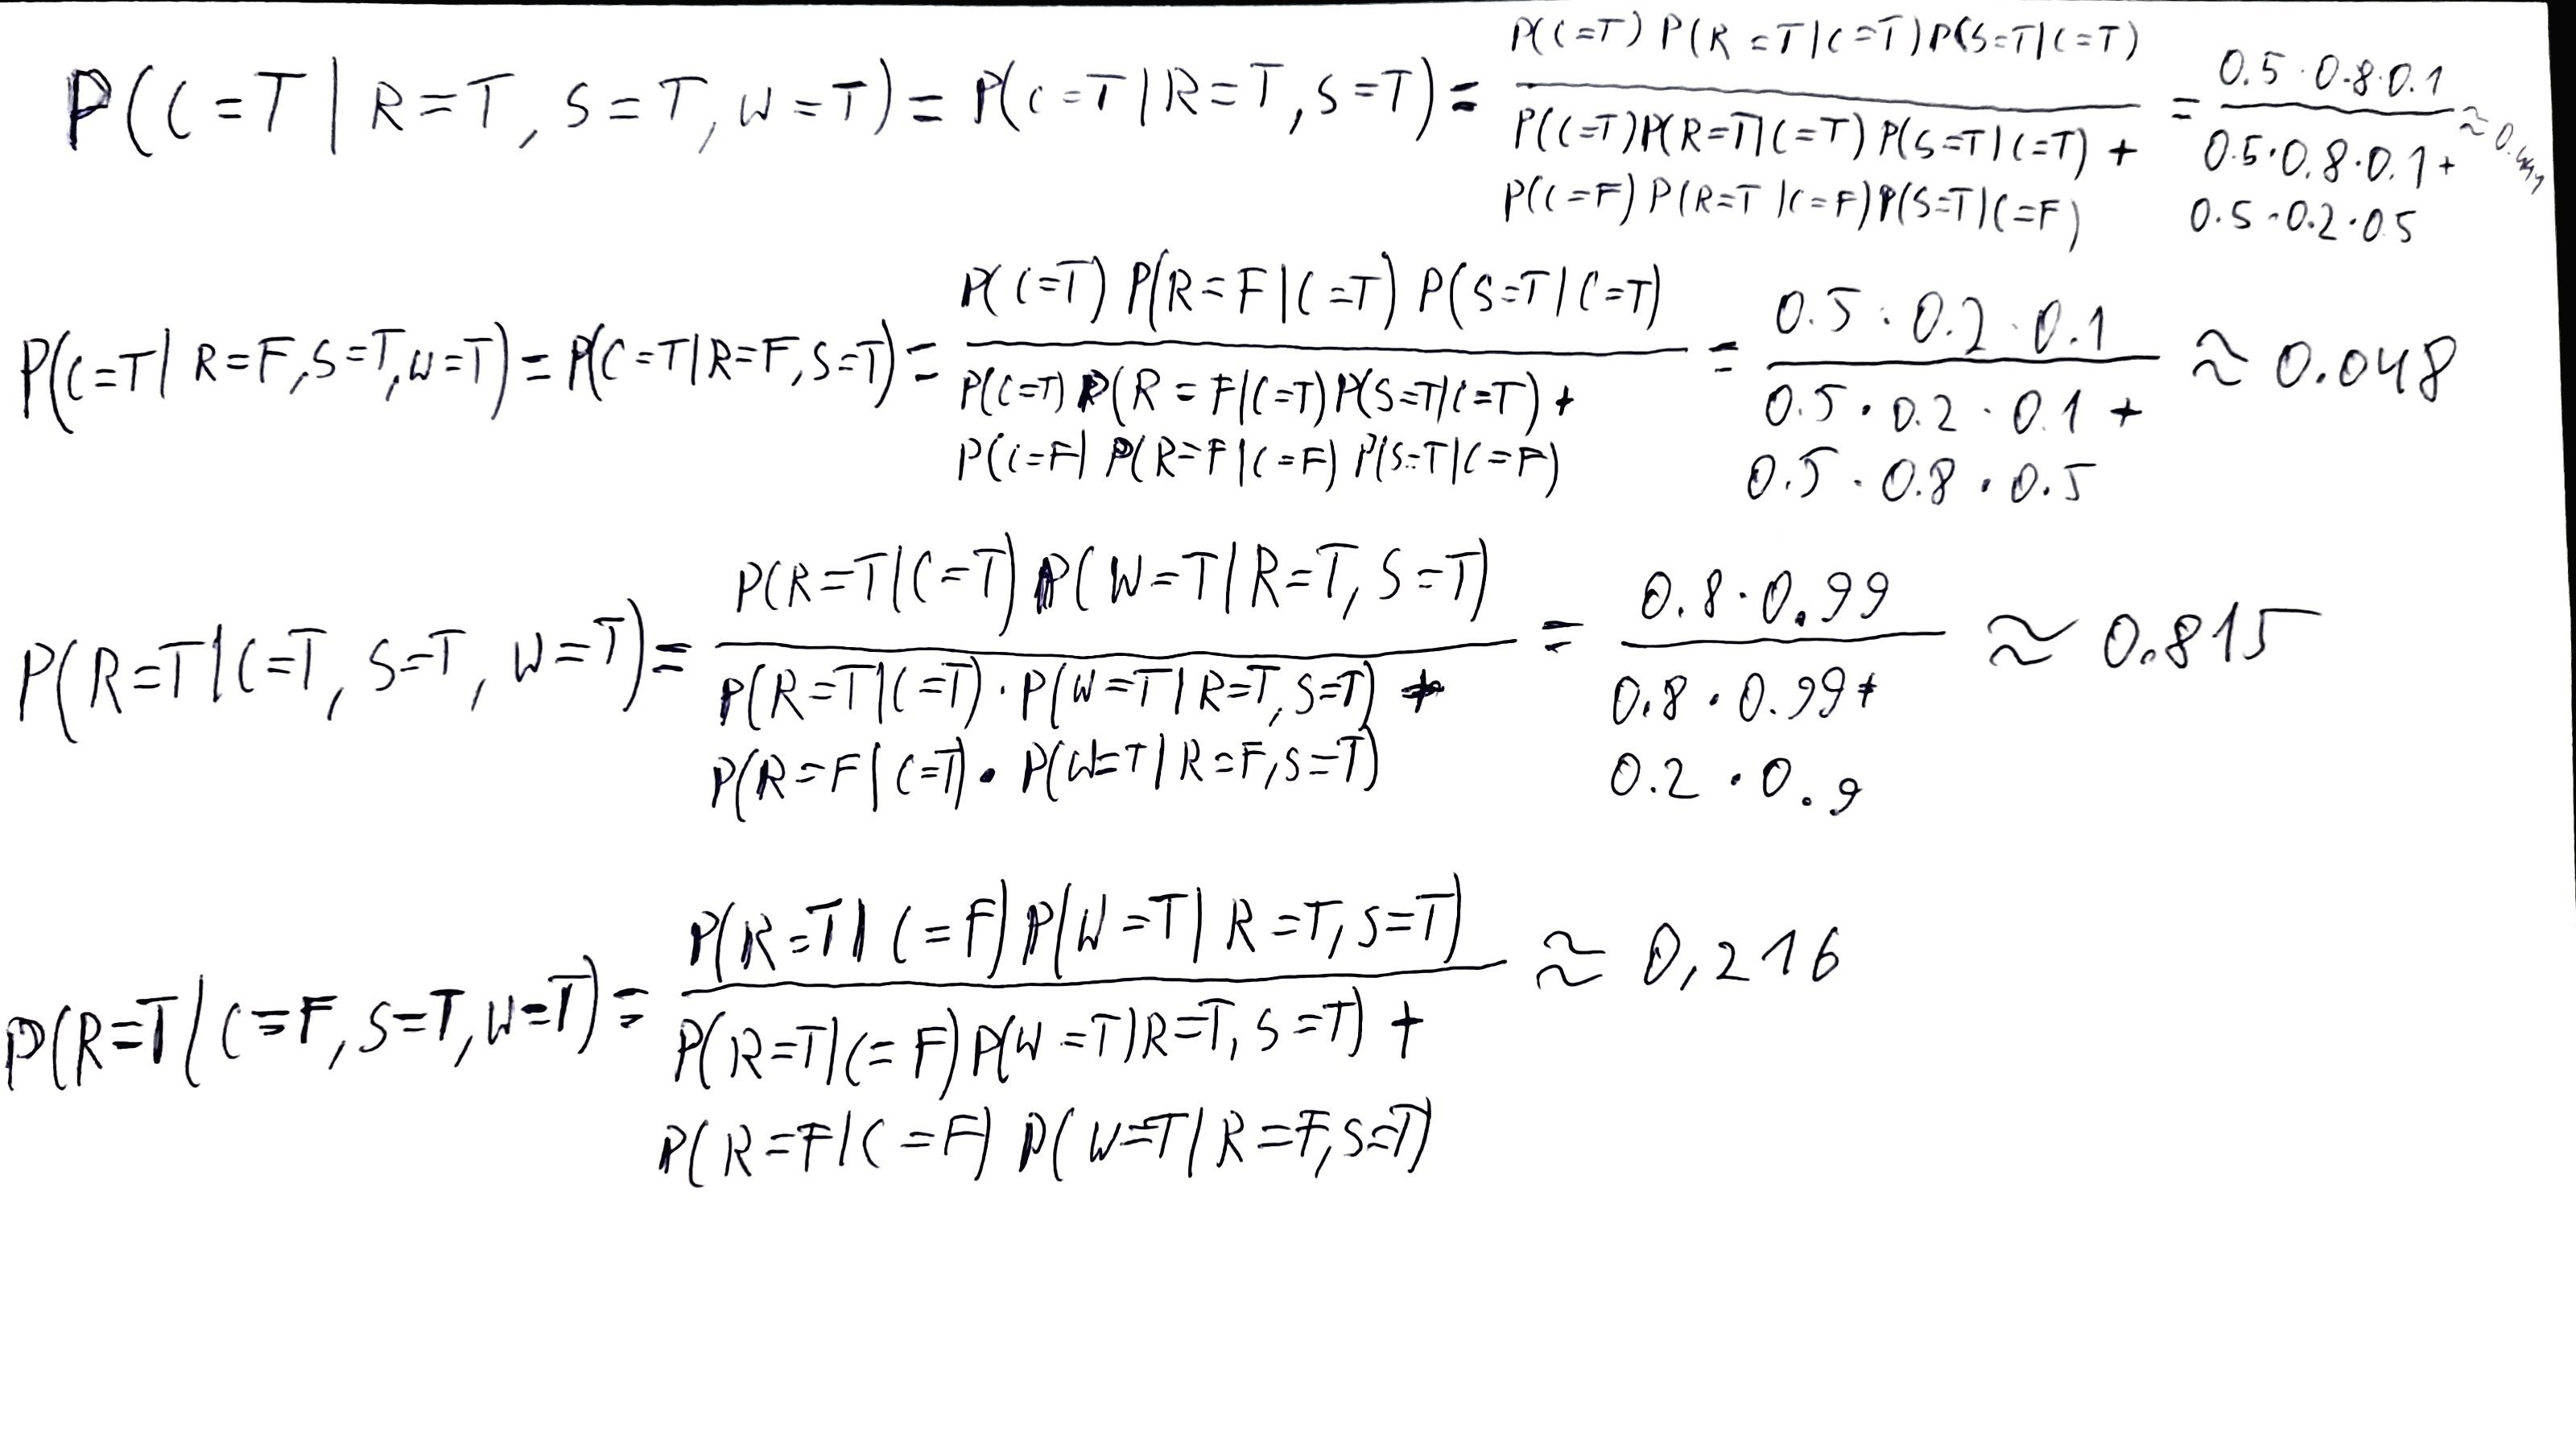 P(C=T | R=T, S=T, W=T) = P(C=T | R=T, S=T) = P(C=T) P(R=T|C=T) P(S=T|C=T) / P(C=T) P(R=T|C=T) P(S=T|C=T) + P(C=F) P(R=T|C=F) P(S=T|C=F) = 0.5 · 0.8 · 0.1 / 0.5 · 0.8 · 0.1 + 0.5 · 0.2 · 0.5 ≈
P(C=T | R=F, S=T, W=T) = P(C=T | R=F, S=T) = P(C=T) P(R=F|C=T) P(S=T|C=T) / P(C=T) P(R=F|C=T) P(S=T|C=T) + P(C=F) P(R=F|C=F) P(S=T|C=F) = 0.5 · 0.2 · 0.1 / 0.5 · 0.2 · 0.1 + 0.5 · 0.8 · 0.5 ≈ 0.048
P(R=T | C=T, S=T, W=T) = P(R=T|C=T) P(W=T|R=T, S=T) / P(R=T|C=T) · P(W=T|R=T, S=T) + P(R=F|C=T) · P(W=T|R=F, S=T) = 0.8 · 0.99 / 0.8 · 0.99 + 0.2 · 0.9 ≈ 0.815
P(R=T | C=F, S=T, W=T) = P(R=T|C=F) P(W=T|R=T, S=T) / P(R=T|C=F) P(W=T)R=T, S=T) + P(R=F|C=F) P(W=T|R=F, S=T) ≈ 0,216